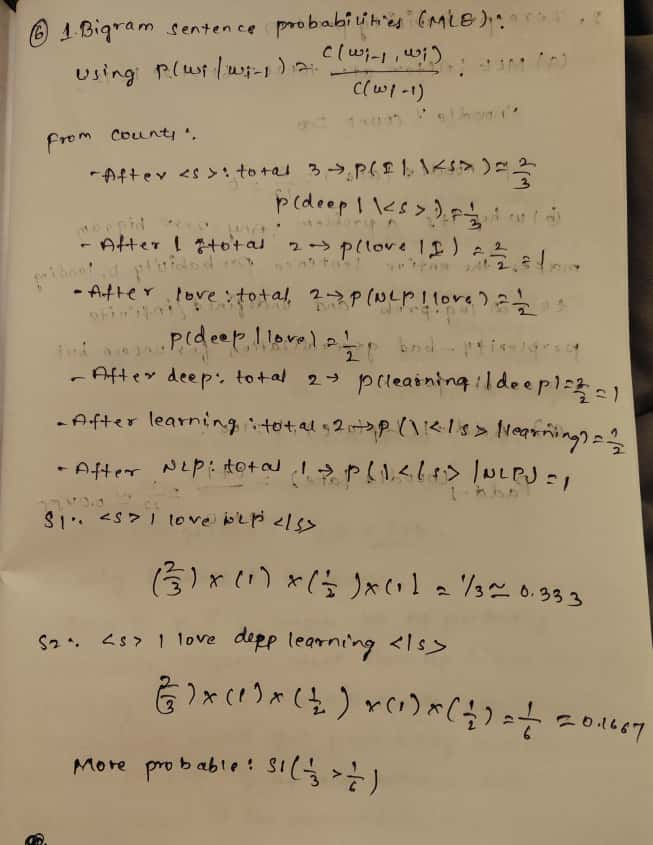 ⑥ 1. Bigram sentence probabilities (MLE):
using P(wi | wi-1) = C(wi-1, wi) / C(wi-1)
from counts:
- After <s>: total 3 → P(I | \<s>) = 2/3
P(deep | \<s>) = 1/3
- After I total 2 → P(love | I) = 2/2 = 1
- After love: total 2 → P(NLP | love) = 1/2
P(deep | love) = 1/2
- After deep: total 2 → P(learning | deep) = 2/2 = 1
- After learning: total 2 → P(\</s> | learning) = 1/2
- After NLP: total 1 → P(\</s> | NLP) = 1
S1: <s> I love NLP </s>
(2/3) x (1) x (1/2) x (1) = 1/3 ≃ 0.333
S2: <s> I love depp learning </s>
(2/3) x (1) x (1/2) x (1) x (1/2) = 1/6 ≃ 0.1667
More probable: S1 (1/3 > 1/6)